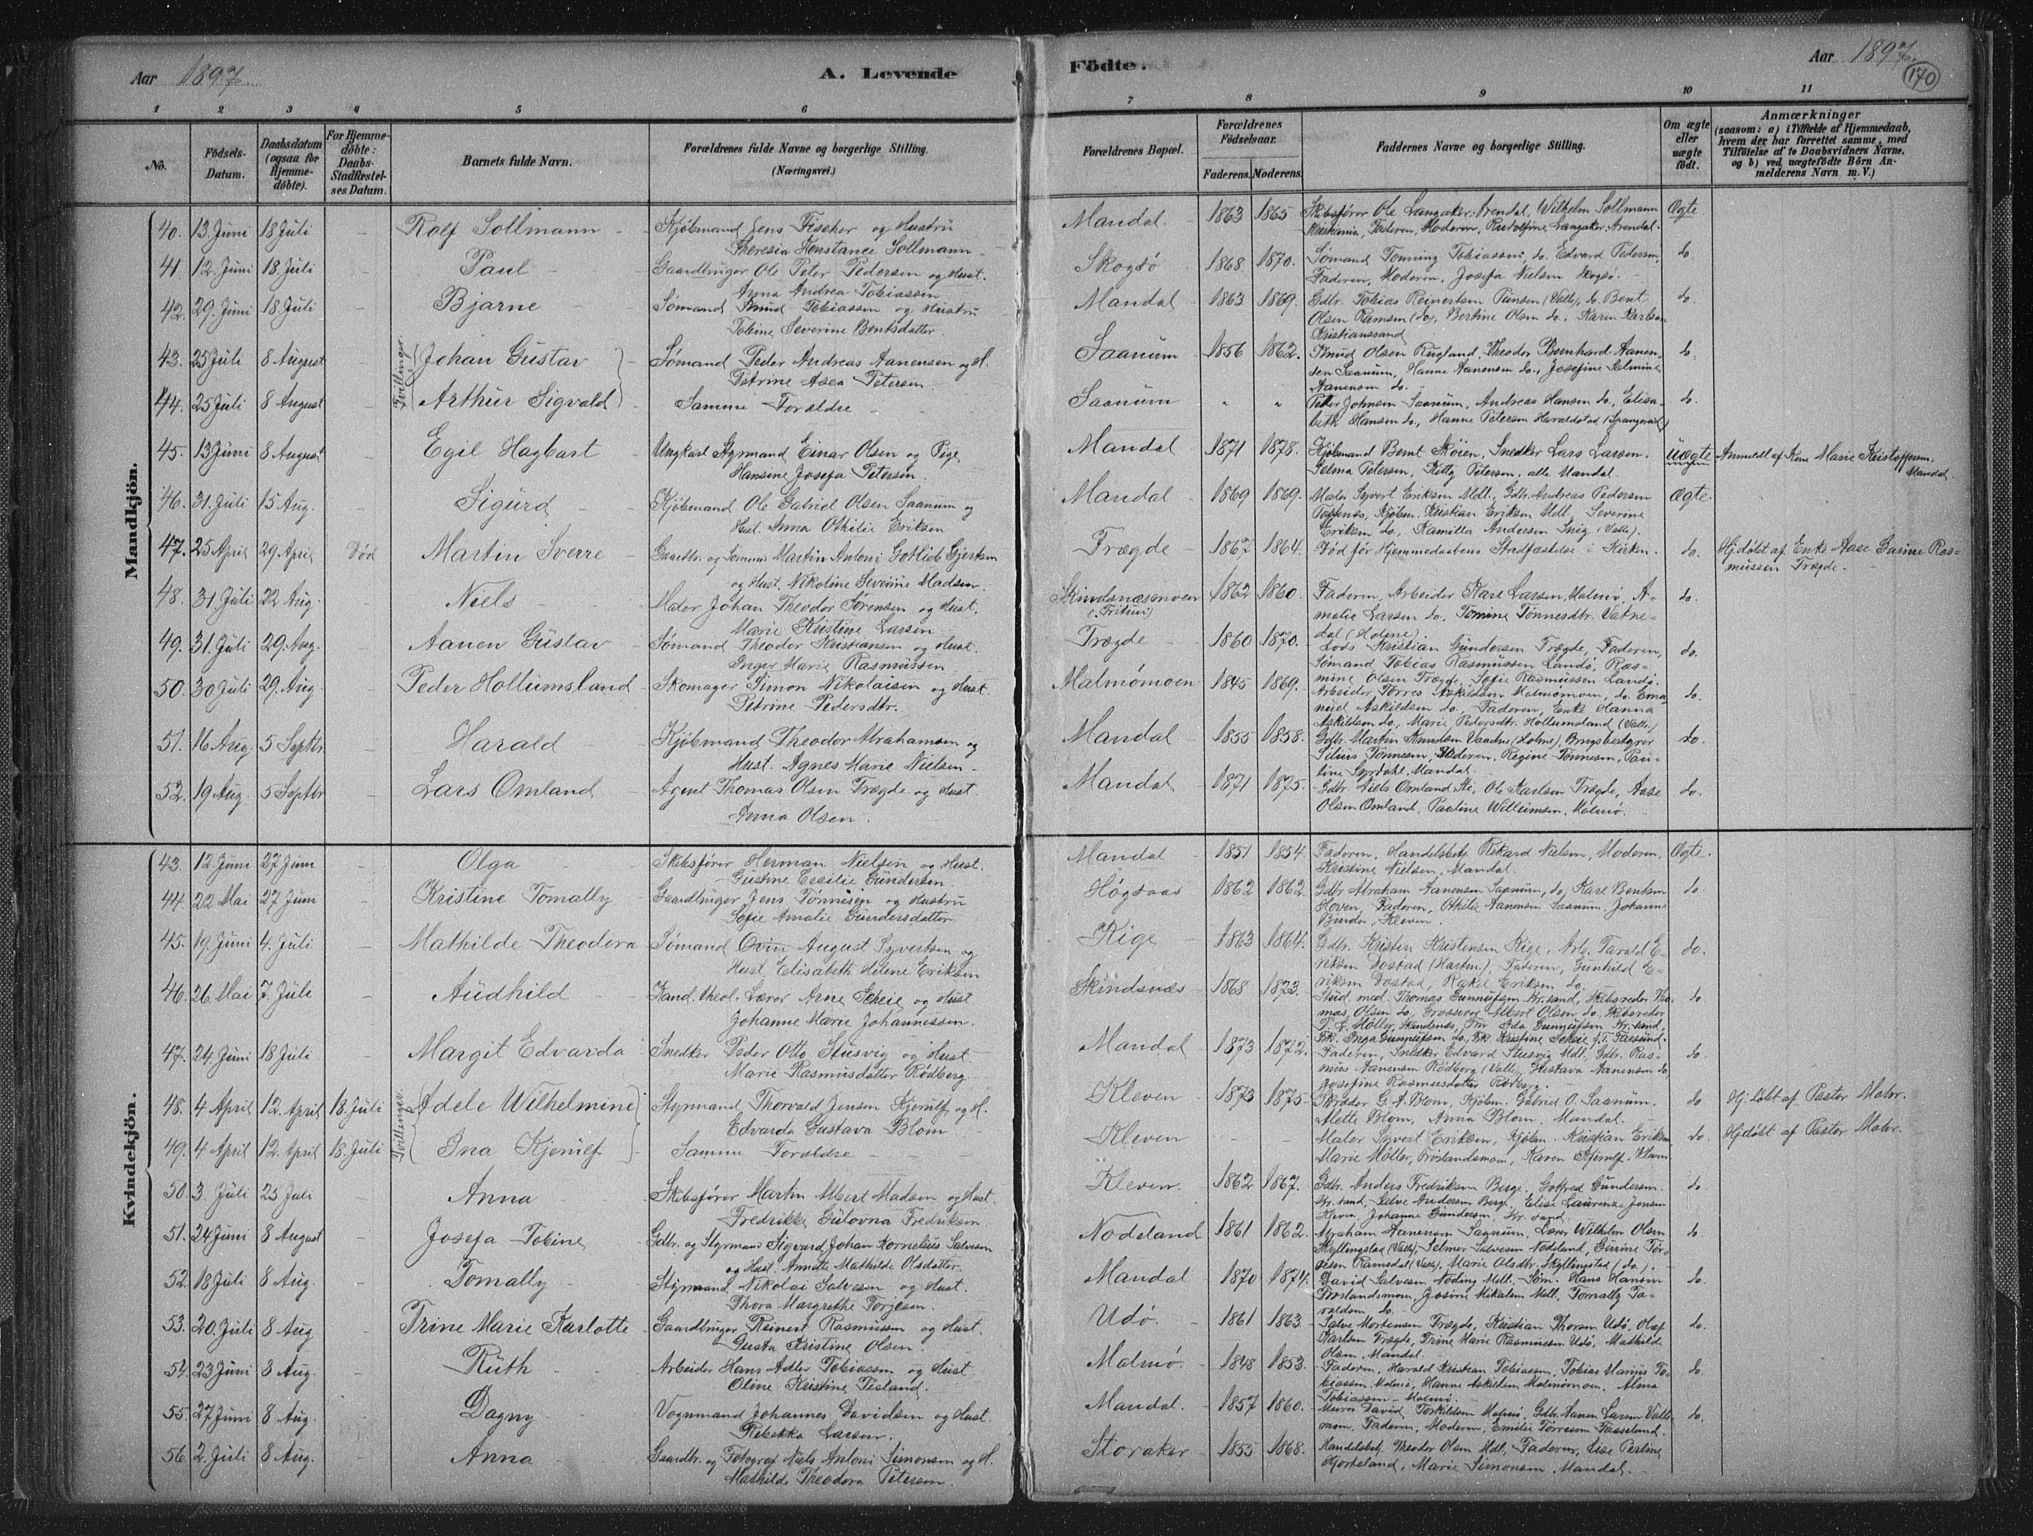 Aar 1897.
A. Levende
Födte.
Aar 1897.
170
1 2 3 4 5 6 7 8 9 10 11
No.
Födsels-Datum.
Daabsdatum (ogsaa for Hjemmedöbte).
For Hjemmedöbte: Daabs-Stadfæstelses Datum.
Barnets fulde Navn.
Forældrenes fulde Navne og borgerlige Stilling.
(Næringsvei.)
Forældrenes Bopæl.
Forældrenes Födselsaar.
Faderens. Moderens.
Faddernes Navne og borgerlige Stilling.
Om ægte eller uægte födt.
Anmærkninger
(saasom: a) i Tilfælde af Hjemmedaab, hvem der har forrettet samme, med Tilföielse af to Daabsvidners Navne. og b) ved uægtefödte Börn Anmelderens Navn m. V.)
Mandkjön.
40. 13 Juni 18 Juli - Rolf Sollmann - Kjøbmand Jens Fischer og Hustru
Theresia Konstance Sollmann -
Mandal - 1863 1865 Skibsfører Ole Langaker, Arendal, Wilhelm Sollmann Ægte
Kristiania, Faderen, Moderen, Rudolfine Langaker, Arendal.
41. 12 Juni 18 Juli - Paul - Gaardbruger Ole Peter Pedersen og Hust.
Anna Andrea Tobiassen
Skogsø 1868 1870. Sømand Tønning Tobiassen, do. Edvard Pedersen, do.
Faderen, Moderen, Josefa Nielsen Skogsø.
42. 29 Juni 18 Juli - Bjarne - Sømand Knud Tobiassen og Hustru
Tobine Severine Bentsdatter
Mandal 1863 1869. Gdbr. Tobias Reinertsen (Valle), do. Bent do.
Olsen Ramsen (do), Bertine Olsen do., Karen Karlsen
Kristianssand
43. 25 Juli 8 August Tvillinger Johan Gustav Sømand Peder Andreas Aanensen og H.
Petrine Asea Petersen
Saanum - 1856 1862. Knud Olsen Rugland, Theodor Bernhard Aanen- do.
sen Saanum, Hanne Aanensen do., Josefine Salmine
Aanensen do.
44. 25 Juli 8 August Arthur Sigvald Samme Forældre
Saanum " " Peter Johnsen Saanum, Andreas Hansen do, Elisa- do.
beth Hansen do., Hanne Petersen Haraldstad (Spangereid)
45. 13 Juni 8 August - Egil Hagbart Ungkarl Styrmand Einar Olsen og Pige
Hansine Josefa Petersen
Mandal - 1871 1878. Kjøbmand Bent Skøien, Snedker Lars Larsen, Uægte Anmeldt af Kone Marie Kristoffersen
Selma Petersen, Kitty Petersen, alle Mandal Mandal
46. 31 Juli 15 Aug. - Sigurd Kjøbmand Ole Gabriel Olsen Saanum og
Hust. Anna Othilie Eriksen
Mandal - 1869 1869. Maler Syvert Eriksen Mdl., Gdbr. Andreas Pedersen Ægte.
Kjøbm. Kristian Eriksen Mdl. Severine
Eriksen do., Kamilla Andersen (Valle).
47. 25 April 29 April Død Martin Sverre - Gaardbr. og Sømand Martin Antoni Gotlieb Gjertsen
og Hust. Nikoline Severine Madsen.
Trægde - 1862 1864. Død før Hjemmedaabens Stadfæstelse i Kirken. do. Hjdøbt af Enke Aase Gurine Ras-
mussen Trægde.
48. 31 Juli 22 Aug. - Niels - Maler Johan Theodor Sørensen og Hust.
Marie Kristine Larsen
Skindsnæsmoen 1862 1860. Faderen, Arbeider Karl Larsen, Malmø, A- do.
malie Larsen do, Tomine Tønnesdtr. Vatne-
dal (Holme).
49. 31 Juli 29 Aug. - Aanen Gustav Sømand Theodor Kristiansen og Hust.
Inger Marie Rasmussen -
Trægde - 1860 1870. Lods Kristian Gundersen Trægde, Faderen, do.
Sømand Tobias Rasmussen Landø, Ras-
mine Olsen Trægde, Sofie Rasmussen Landø.
50. 30 Juli 29 Aug - Peder Hollumsland Skomager Simon Nikolaisen og Hust
Petrine Pedersdtr.
Malmømoen 1845 1869. Arbeider Tørres Askildsen Malmømoen, do. Ema- do.
nuel Askildsen do, Faderen, Enke Hanna
Askildsen do, Marie Pedersdtr. Hollumsland (Valle)
51. 16 Aug. 5 Septbr. - Harald - Kjøbmand Theodor Abrahamsen og
Hust. Agnes Marie Nielsen -
Mandal - 1855 1858. Gdbr. Martin Knudsen (Holme), Brugsbestyrer do.
Silius Tønnesen, Faderen, Regine Tønnesen, Pau-
line Syrdahl, Mandal.
52. 19 Aug 5 Septbr - Lars Omland - Agent Thomas Olsen Trægde og Hust.
Anna Olsen.
Mandal - 1871 1875. Gdbr. Niels Omland, Ole Karlsen Trægde, Aase do.
Olsen Omland, Pauline Willumsen, Malmø.
Kvindekjön.
43. 12 Juni 27 Juni - Olga - Skibsfører Herman Nielsen og Hust.
Gustine Cecilie Gundersen
Mandal 1851 1854. Faderen, Handelsbetj. Rikard Nielsen, Moderen, Ægte.
Kristine Nielsen, Mandal.
44 22 Mai 27 Juni - Kristine Tomally Gaardbruger Jens Tønnesen og Hustru
Sofie Amalie Gundersdatter
Høgsaas 1862 1862. Gdbr. Abraham Aanensen Saanum, do. Karl Bentsen do.
Hoven, Faderen, Othilie Aanensen Saanum, Johanne
Kleven.
45. 19 Juni 4 Juli - Mathilde Theodora Sømand Ovin August Syvertsen og
Hust. Elisabeth Helene Eriksen
Kige - 1863 1864. Gdbr. Kristen Kristensen Kige, Arb. Tarald E- do.
riksen Dostad (Hartm.), Faderen, Gunhild E-
riksen Dostad, Rakel Eriksen do.
46. 26 Mai 7. Juli - Audhild - Kand. theol. Lærer Arne Skeie og Hust
Johanne Marie Johannessen.
Skindsnæs 1868 1873. Stud. med. Thomas Gunnufsen Kr.sand, Skibsreder Tho- do.
mas Olsen do, Albert Olsen do, Skibsreder
Møller, Skindsnæs, Fru Ida Gunnufsen Kr.sand,
Frk. Inga Gunnufsen do, Frk. Kristine Skeie
47. 24 Juni 18 Juli - Margit Edvarda Snedker Peder Otto Stusvig og Hust
Marie Rasmusdatter Rødberg
Mandal - 1873 1872. Faderen, Snedker Edvard Stusvig Mdl., Gdbr. Ras- do.
mus Aanensen Rødberg (Valle), Gustava Aanensen do,
Josefine Rasmusdatter Rødberg.
48. 4 April 12. April 18. Juli Tvillinger Adele Wilhelmine Styrmand Thorvald Jensen Kjerulf og H.
Edvarda Gustava Blom -
Kleven 1873 1875. Skræder G. A. Blom, Kjøbm. Gabriel O. Saanum. do Hj.døbt af Pastor Mohr.
Mette Blom, Anna Blom, Mandal.
49. 4 April 12. April 18. Juli Ina Kjerulf Samme Forældre - -
Kleven - - Maler Syvert Eriksen, Kjøbm. Kristian Eriksen do. Hjdøbt af Pastor Mohr.
Marie Møller, Frøslandsmoen, Karen Kjerulf, Kleven
50. 3. Juli 25 Juli - Anna Skibsfører Martin Albert Madsen og Hust.
Fredrikke Gulovna Fredriksen
Kleven. 1862 1867. Gdbr. Anders Fredriksen Berge, Gotfred Gundersen do
Kr.sand, Salve Andersen Berge, Elise Laurenza Jensen
Kleven, Johanne Gundersen, Kr.sand.
51. 24 Juni 8 August - Josefa Tobine Gdbr. og Styrmand Sigvard Johan Kornelius Salvesen
og Hust. Annette Mathilde Olsdatter.
Nodeland 1861 1862. Abraham Aanensen Saanum, Lærer Wilhelm Olsen do
Skyllingstad (Valle), Selmer Salvesen Nodeland, Gurine Tor-
Ramsdal (Valle), Marie Olsdtr. Skyllingstad (do.).
52. 18 Juli 8 Aug. - Tomally - Styrmand Nikolai Salvesen og Hust.
Thora Margrethe Torjesen.
Mandal 1870 1874. David Salvesen Noding Mdl. Søm. Hans Hansen do.
Frøslandsmoen, Josine Mikalsen Mdl. Tomally Ta-
raldsen do.
53. 20. Juli 8 Aug - Trine Marie Karlotte Gaardbruger Reinert Rasmussen og Hust.
Gusta Kristine Olsen.
Udø. 1861 1863. Salve Mortensen Trægde, Kristian Thorsen Udø, Olaf do.
Karlsen Trægde, Trine Marie Rasmussen Udø, Mathilde
Olsen, Mandal.
54. 23 Juni 8 Aug. - Ruth - Arbeider Hans Adler Tobiassen og Hust
Oline Kristine Fisland.
Malmø. - 1848 1853. Faderen, Harald Kristian Tobiassen, Tobias Marius To- do
biassen Malmø, Hanne Askildsen Malmømoen, Alma
Tobiassen - Malmø.
55. 27 Juni 8 Aug. - Dagny Vognmand Johannes Davidsen og Hust.
Rebekka Larsen.
Mandal. 1857 1860. Murer David Torkildsen Malmø, Gdbr. Aanen Larsen Valle- do.
moen, Faderen, Moderen, Emilie Torresen Fasseland.
56. 2. Juli 8 Aug. - Anna Gaardbr. og Fotograf Niels Antoni Simonsen og H.
Mathilde Theodora Petersen
Storaker 1855 1868. Handelsbetj. Theodor Olsen Mdl., Faderen, Lise Perline
Hjorteland, Marie Simonsen, Mandal.